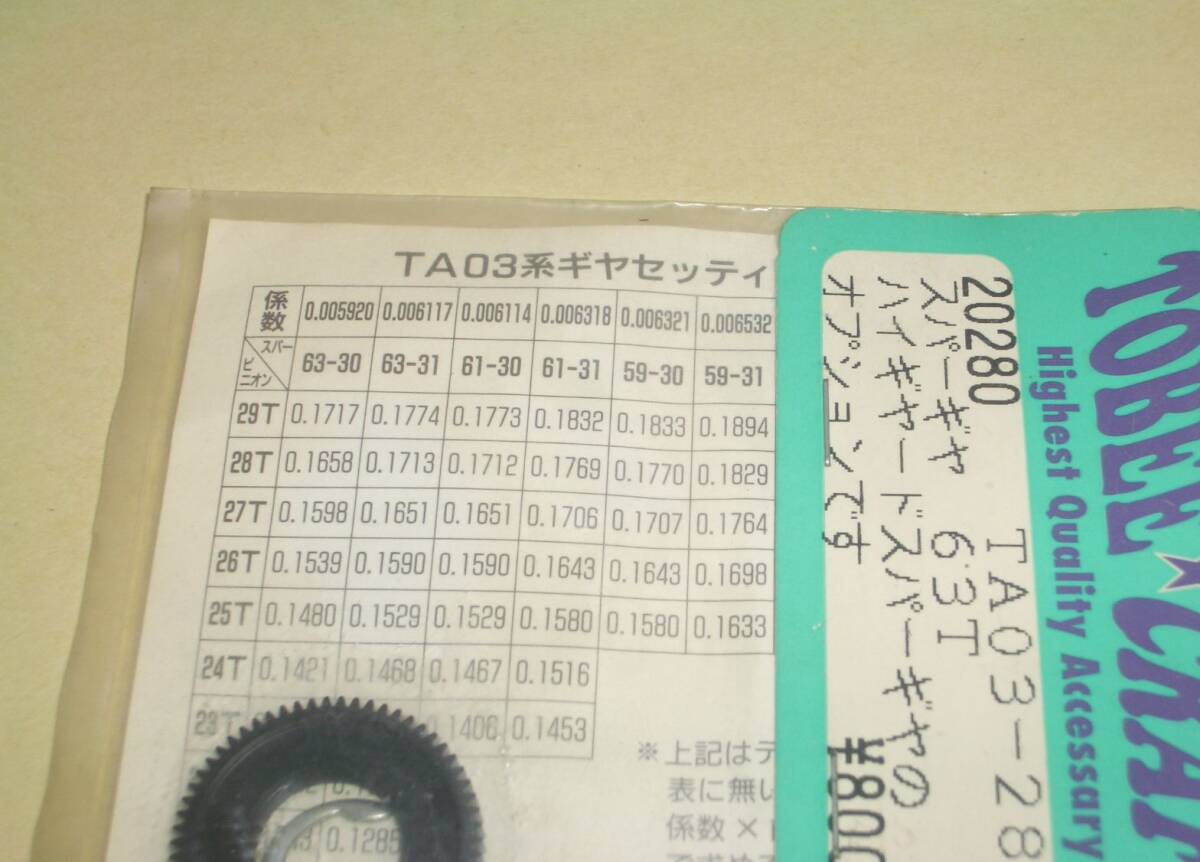 TA03系ギヤセッティ
係数 0.005920 0.006117 0.006114 0.006318 0.006321 0.006532
スパー ピニオン 63-30 63-31 61-30 61-31 59-30 59-31
29T 0.1717 0.1774 0.1773 0.1832 0.1833 0.1894
28T 0.1658 0.1713 0.1712 0.1769 0.1770 0.1829
27T 0.1598 0.1651 0.1651 0.1706 0.1707 0.1764
26T 0.1539 0.1590 0.1590 0.1643 0.1643 0.1698
25T 0.1480 0.1529 0.1529 0.1580 0.1580 0.1633
24T 0.1421 0.1468 0.1467 0.1516
23T 0.1406 0.1453
0.1285
※上記はデ
表に無い
係数×
で求め
TOBEE★CRAF
Highest Quality Accessary
20280 TA03-28
スパーギヤ 63T
ハイギヤードスパーギヤの
オプションです
¥800